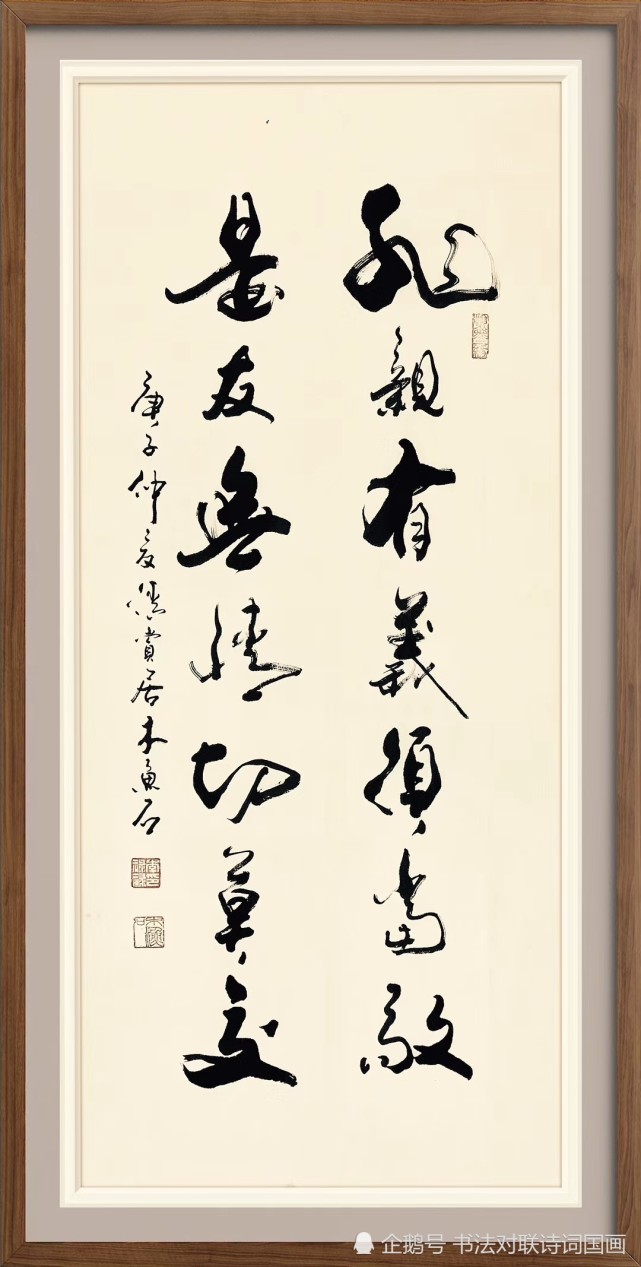 非親有義須當敬
是友無情切莫交
庚子仲夏賞居木魚石
企鹅号 书法对联诗词国画